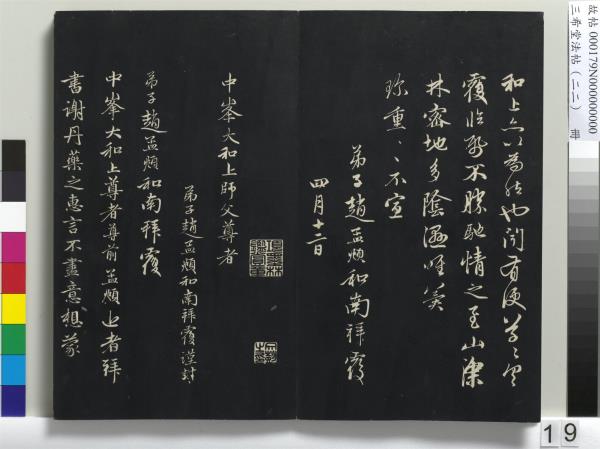 和上亦以為然也聞有便草草具
覆臨紙不勝馳情之至山深
林密地多陰濕唯冀
珍重、、不宣
弟子趙孟頫和南拜覆
四月十二日
中峯大和上師父尊者
弟子趙孟頫和南拜覆謹封
弟子趙孟頫和南拜覆
中峯大和上尊者尊前孟頫近者拜
書謝丹藥之惠言不盡意想蒙
故帖 000179N000000000
三希堂法帖(二二) 冊
19